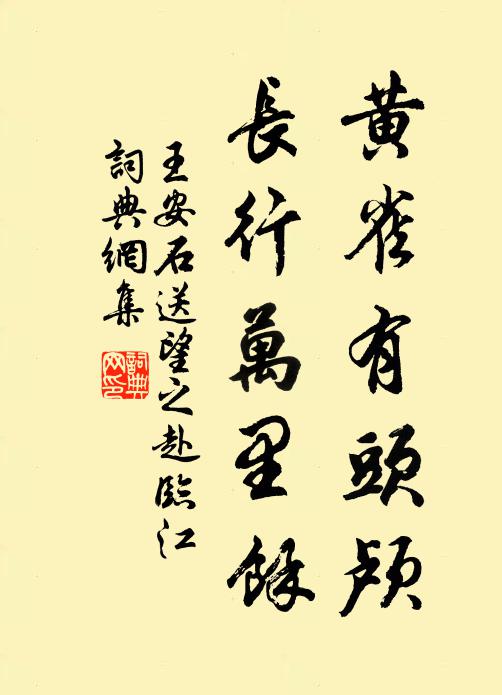 黄雀有頭顱
長行萬里餘
王安石送望之赴臨江
詞典網集
詞典网印